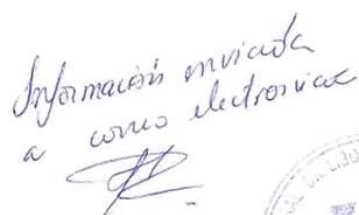 Información enviada
a correo electronico